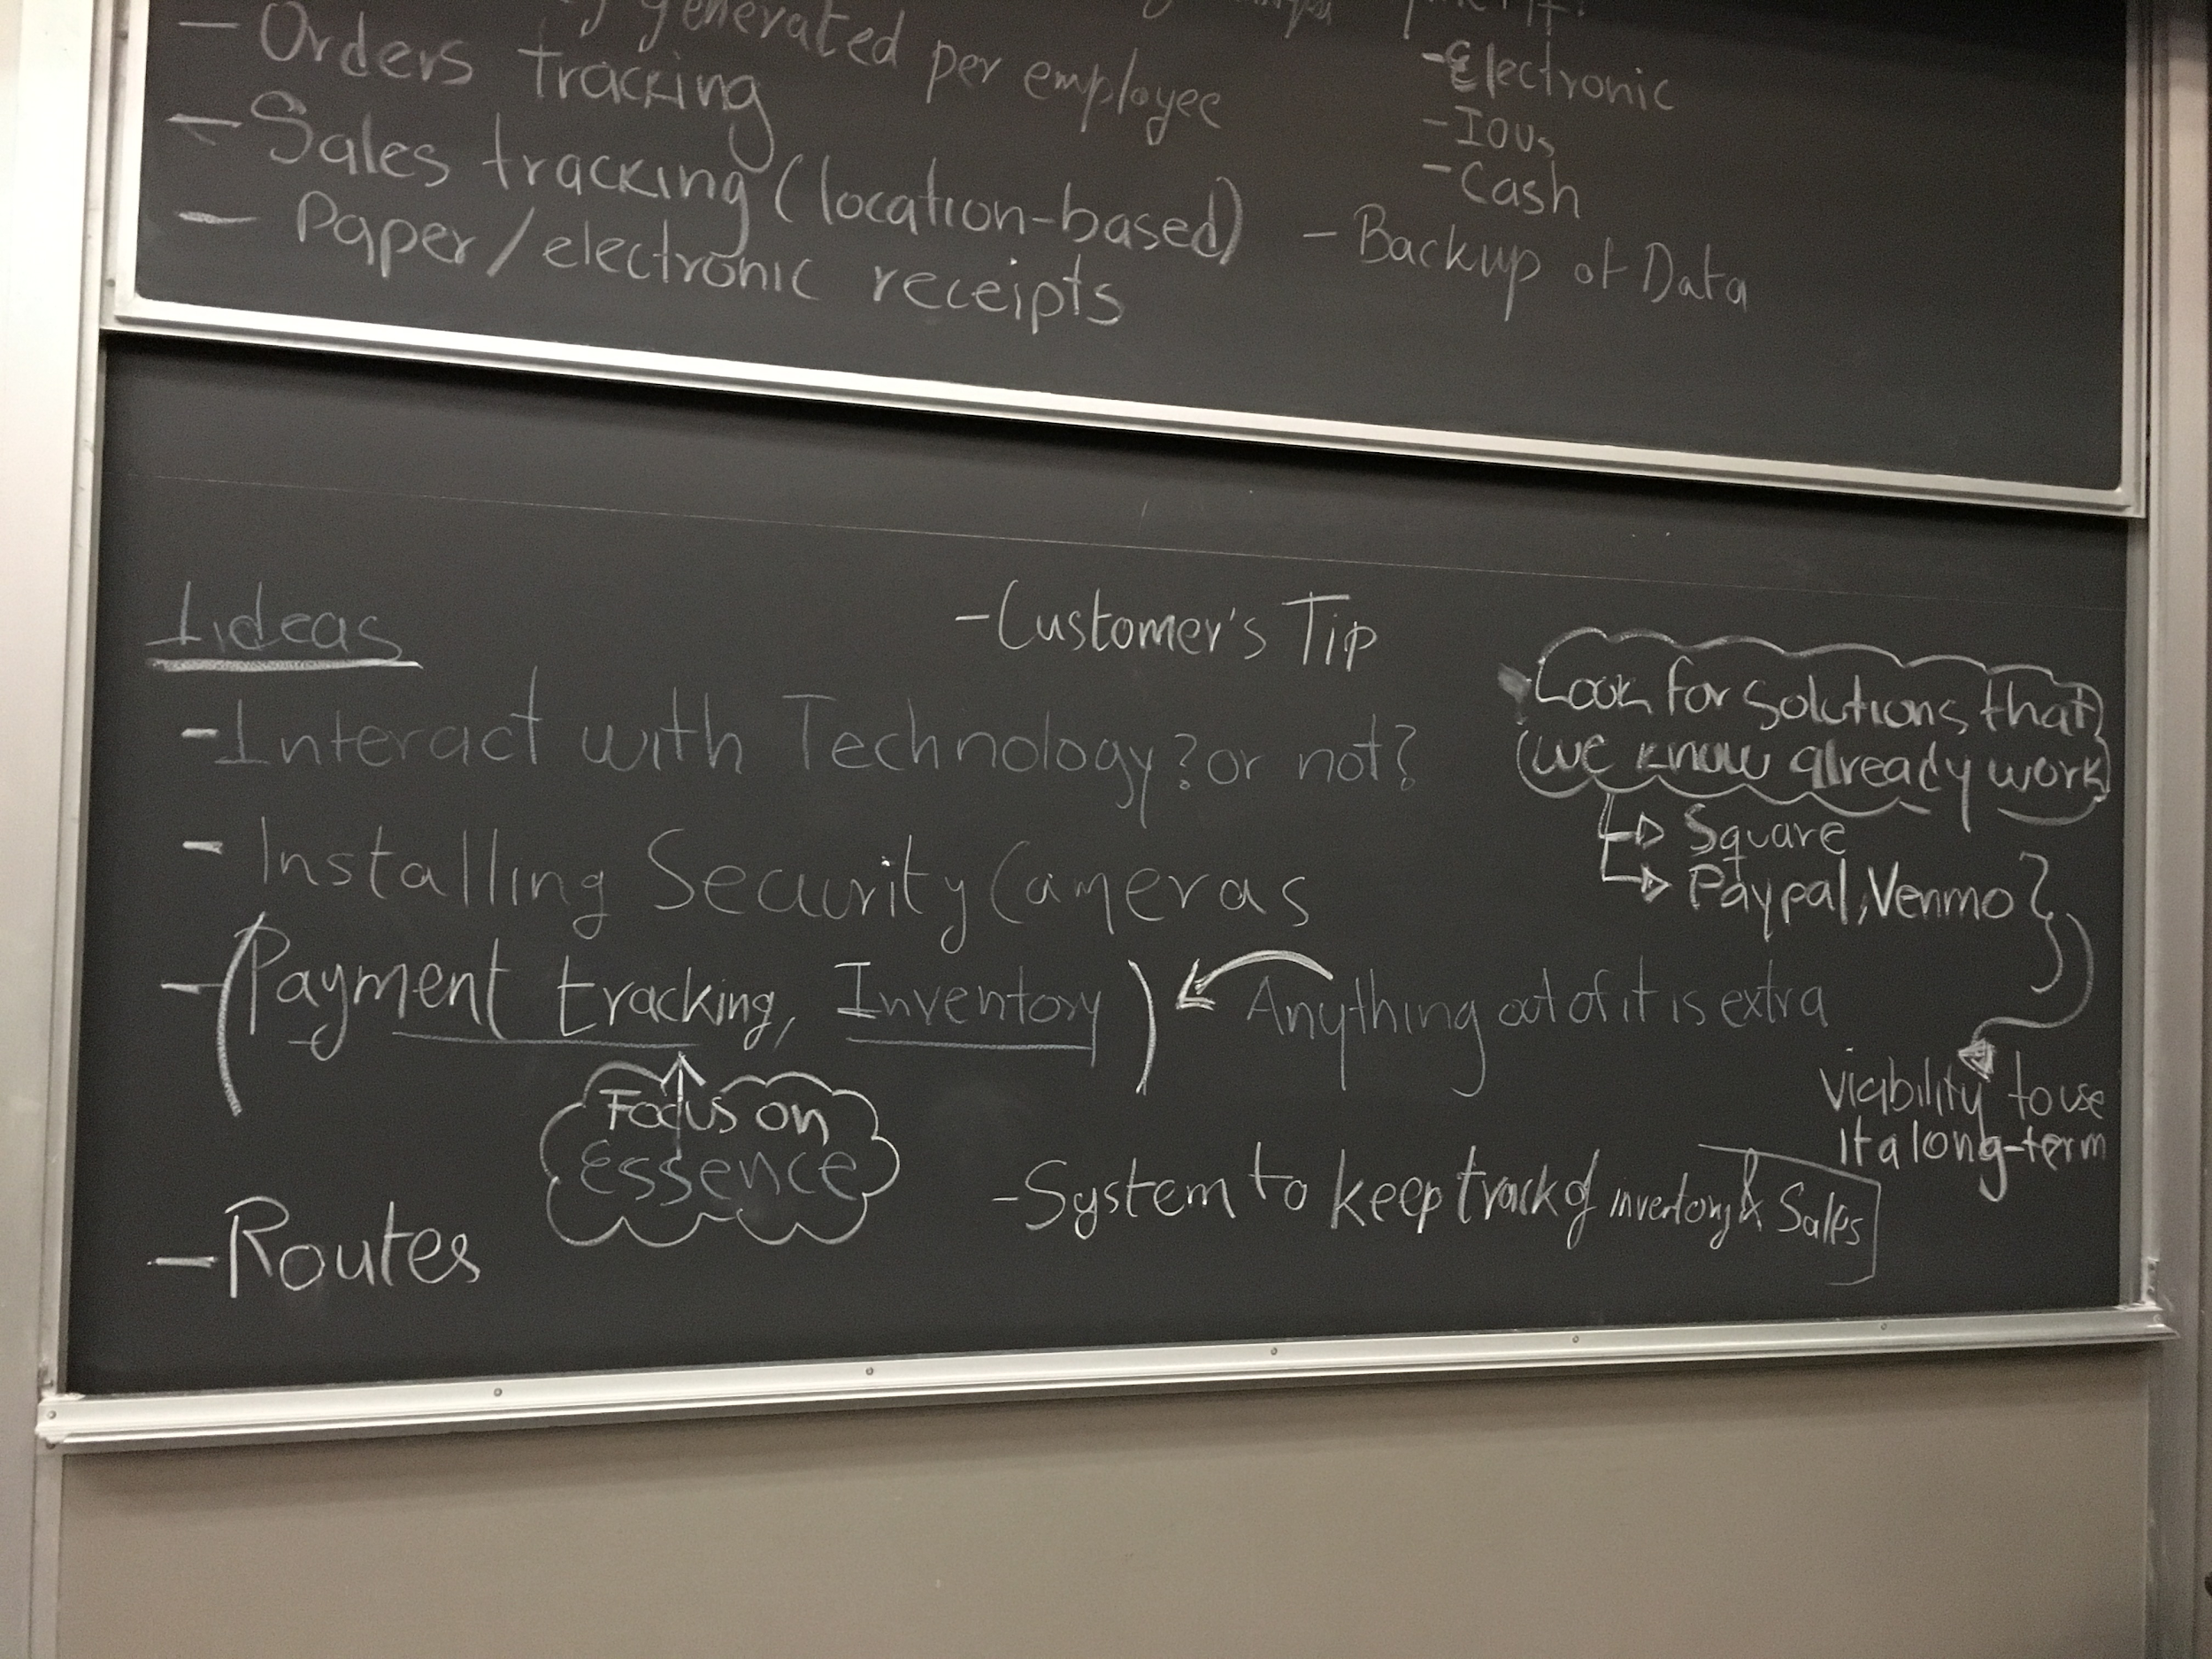 generated per employee
- Orders tracking
- Sales tracking (location-based)
- Paper/electronic receipts
- Electronic
- IOUs
- Cash
- Backup of Data
Ideas
- Customer's Tip
- Interact with Technology? or not?
- Installing Security Cameras
- (Payment tracking, Inventory)
Anything out of it is extra
Focus on
essence
- Routes
- System to keep track of inventory & Sales
Look for solutions that
we know already work
Square
Paypal, Venmo
viability to use
it a long-term